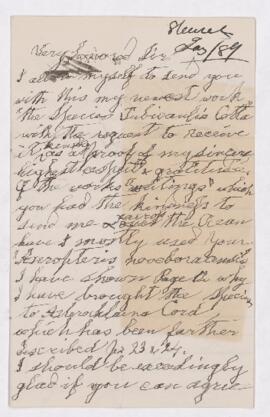 Very Sir
I allow myself to send you
with this my newest work
"the Species Tubicaulis Cotta
with the request to receive
it kindly as a proof of my sincere
highest esteem & gratitude.
Of the works & writings which
you had the kindness to
send me over the Ocean
have I mostly used your
Aneropteris noveboracensis
I have shown Page 12 why
I have brought the Species
to Asterochlaena Cord
which has been farther
described pg 23 & 24.
I should be exceedingly
glad if you can agree